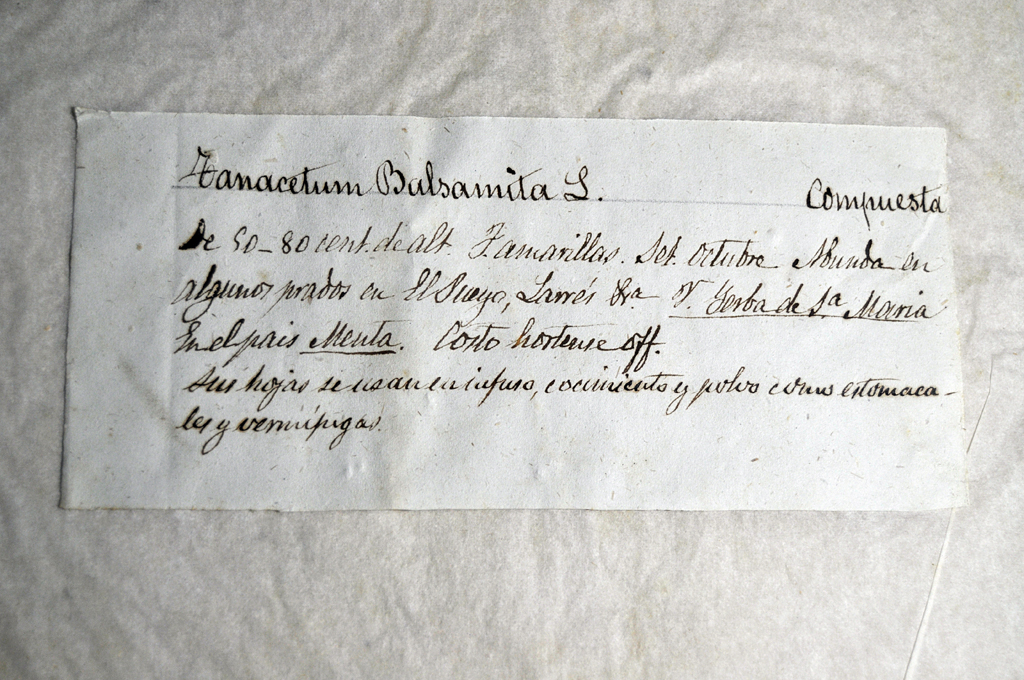 Tanacetum Balsamita L. Compuesta
De 50-80 cent. de alt. F. amarillas. Set. Octubre Abunda en
algunos prados en El Pueyo, Larrés &a V. Yerba de Sa Maria
En el pais Menta. Costo hortense off.
Sus hojas se usan en infuso, cocimiento y polvo como estomaca-
les y vermífugas.